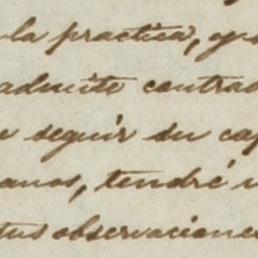 la practica, y
admite contra
seguir su ca
anos, tendré
tus observacione